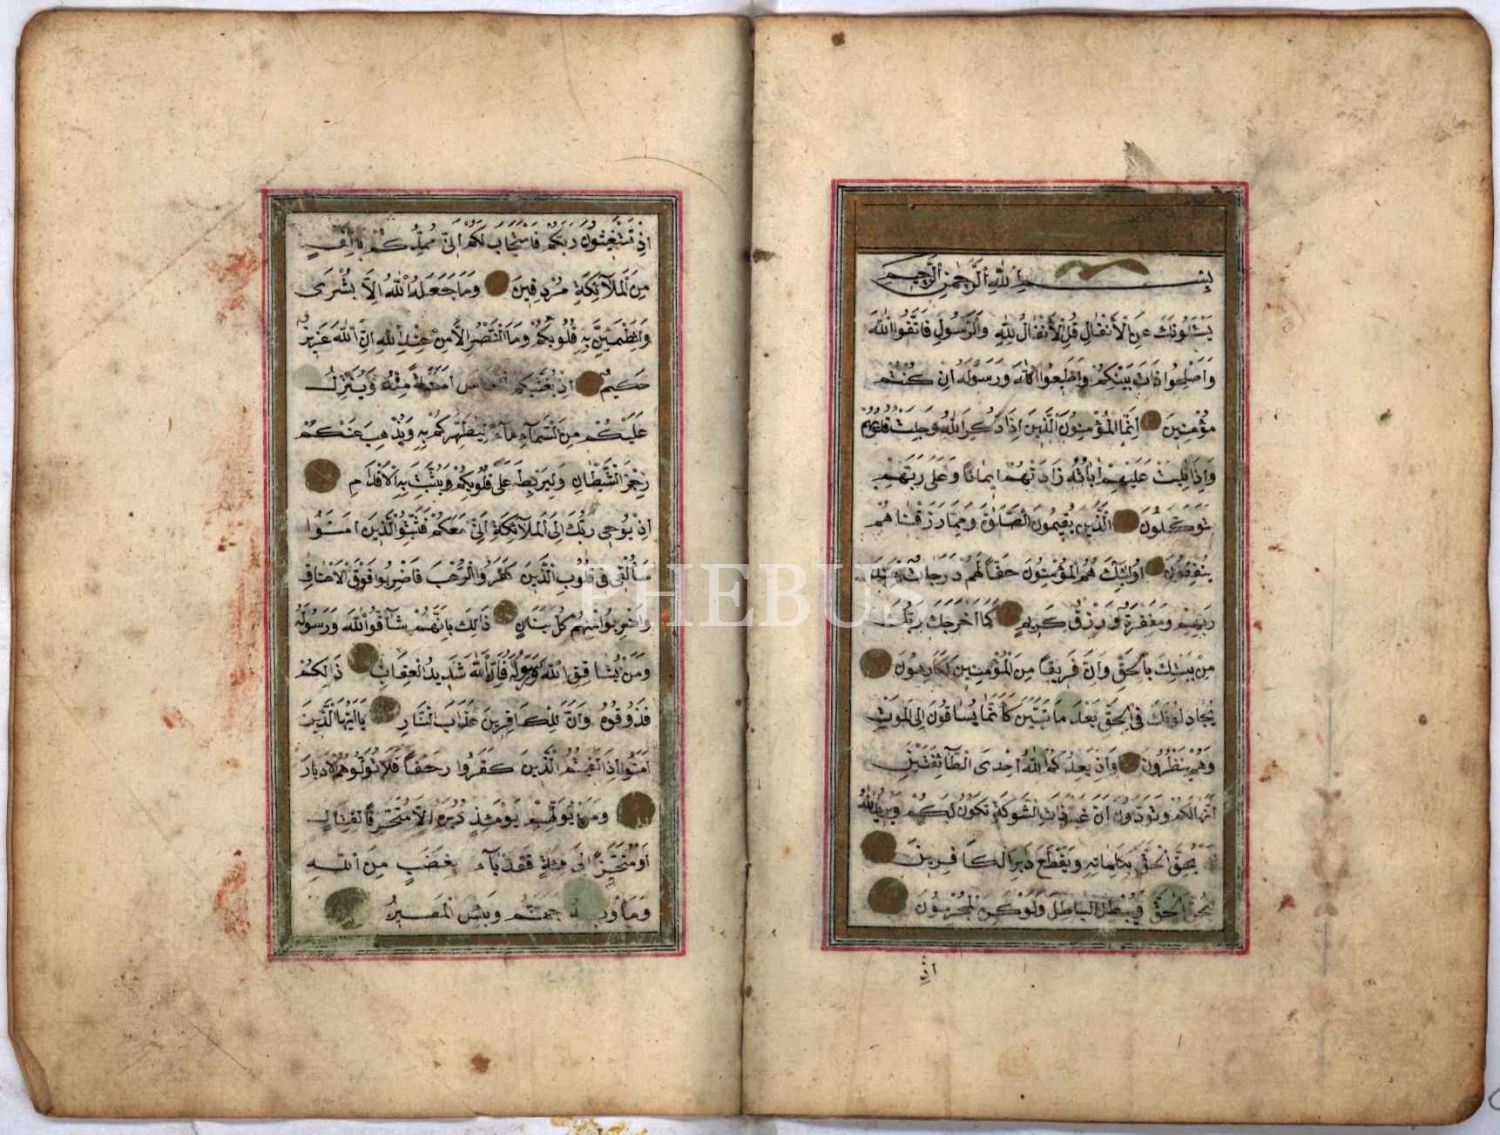 بِسْمِ اللهِ الرَّحْمٰنِ الرَّحِيمِ
يَسْئَلُونَكَ عَنِ الْأَنْفَالِ قُلِ الْأَنْفَالُ لِلّٰهِ وَالرَّسُولِ فَاتَّقُوا اللّٰهَ
وَاَصْلِحُوا ذَاتَ بَيْنِكُمْ وَاَطِيعُوا اللّٰهَ وَرَسُولَهُ اِنْ كُنْتُمْ
مُؤْمِنِينَ اِنَّمَا الْمُؤْمِنُونَ الَّذِينَ اِذَا ذُكِرَ اللّٰهُ وَجِلَتْ قُلُوبُهُمْ
وَاِذَا تُلِيَتْ عَلَيْهِمْ اٰيَاتُهُ زَادَتْهُمْ اِيمَانًا وَعَلٰى رَبِّهِمْ
يَتَوَكَّلُونَ الَّذِينَ يُقِيمُونَ الصَّلٰوةَ وَمِمَّا رَزَقْنَاهُمْ
يُنْفِقُونَ اُولٰئِكَ هُمُ الْمُؤْمِنُونَ حَقًّا لَهُمْ دَرَجَاتٌ عِنْدَ
رَبِّهِمْ وَمَغْفِرَةٌ وَرِزْقٌ كَرِيمٌ كَمَا اَخْرَجَكَ رَبُّكَ
مِنْ بَيْتِكَ بِالْحَقِّ وَاِنَّ فَرِيقًا مِنَ الْمُؤْمِنِينَ لَكَارِهُونَ
يُجَادِلُونَكَ فِي الْحَقِّ بَعْدَ مَا تَبَيَّنَ كَاَنَّمَا يُسَاقُونَ اِلَى الْمَوْتِ
وَهُمْ يَنْظُرُونَ وَاِذْ يَعِدُكُمُ اللّٰهُ اِحْدَى الطَّائِفَتَيْنِ
اَنَّهَا لَكُمْ وَتَوَدُّونَ اَنَّ غَيْرَ ذَاتِ الشَّوْكَةِ تَكُونُ لَكُمْ وَيُرِيدُ اللّٰهُ
اَنْ يُحِقَّ الْحَقَّ بِكَلِمَاتِهِ وَيَقْطَعَ دَابِرَ الْكَافِرِينَ
لِيُحِقَّ الْحَقَّ وَيُبْطِلَ الْبَاطِلَ وَلَوْ كَرِهَ الْمُجْرِمُونَ
اِذْ
اِذْ تَسْتَغِيثُونَ رَبَّكُمْ فَاسْتَجَابَ لَكُمْ اَنِّي مُمِدُّكُمْ بِاَلْفٍ
مِنَ الْمَلَآئِكَةِ مُرْدِفِينَ وَمَا جَعَلَهُ اللّٰهُ اِلَّا بُشْرٰى
وَلِتَطْمَئِنَّ بِهِ قُلُوبُكُمْ وَمَا النَّصْرُ اِلَّا مِنْ عِنْدِ اللّٰهِ اِنَّ اللّٰهَ عَزِيزٌ
حَكِيمٌ اِذْ يُغَشِّيكُمُ النُّعَاسَ اَمَنَةً مِنْهُ وَيُنَزِّلُ
عَلَيْكُمْ مِنَ السَّمَآءِ مَآءً لِيُطَهِّرَكُمْ بِهِ وَيُذْهِبَ عَنْكُمْ
رِجْزَ الشَّيْطَانِ وَلِيَرْبِطَ عَلٰى قُلُوبِكُمْ وَيُثَبِّتَ بِهِ الْاَقْدَامَ
اِذْ يُوحِي رَبُّكَ اِلَى الْمَلَآئِكَةِ اَنِّي مَعَكُمْ فَثَبِّتُوا الَّذِينَ اٰمَنُوا
سَاُلْقِي فِي قُلُوبِ الَّذِينَ كَفَرُوا الرُّعْبَ فَاضْرِبُوا فَوْقَ الْاَعْنَاقِ
وَاضْرِبُوا مِنْهُمْ كُلَّ بَنَانٍ ذَالِكَ بِاَنَّهُمْ شَآقُّوا اللّٰهَ وَرَسُولَهُ
وَمَنْ يُشَاقِقِ اللّٰهَ وَرَسُولَهُ فَاِنَّ اللّٰهَ شَدِيدُ الْعِقَابِ ذَالِكُمْ
فَذُوقُوهُ وَاَنَّ لِلْكَافِرِينَ عَذَابَ النَّارِ يَا اَيُّهَا الَّذِينَ
اٰمَنُوا اِذَا لَقِيتُمُ الَّذِينَ كَفَرُوا زَحْفًا فَلَا تُوَلُّوهُمُ الْاَدْبَارَ
وَمَنْ يُوَلِّهِمْ يَوْمَئِذٍ دُبُرَهُ اِلَّا مُتَحَرِّفًا لِقِتَالٍ
اَوْ مُتَحَيِّزًا اِلٰى فِئَةٍ فَقَدْ بَآءَ بِغَضَبٍ مِنَ اللّٰهِ
وَمَاْوٰيهُ جَهَنَّمُ وَبِئْسَ الْمَصِيرُ
PHEBUS